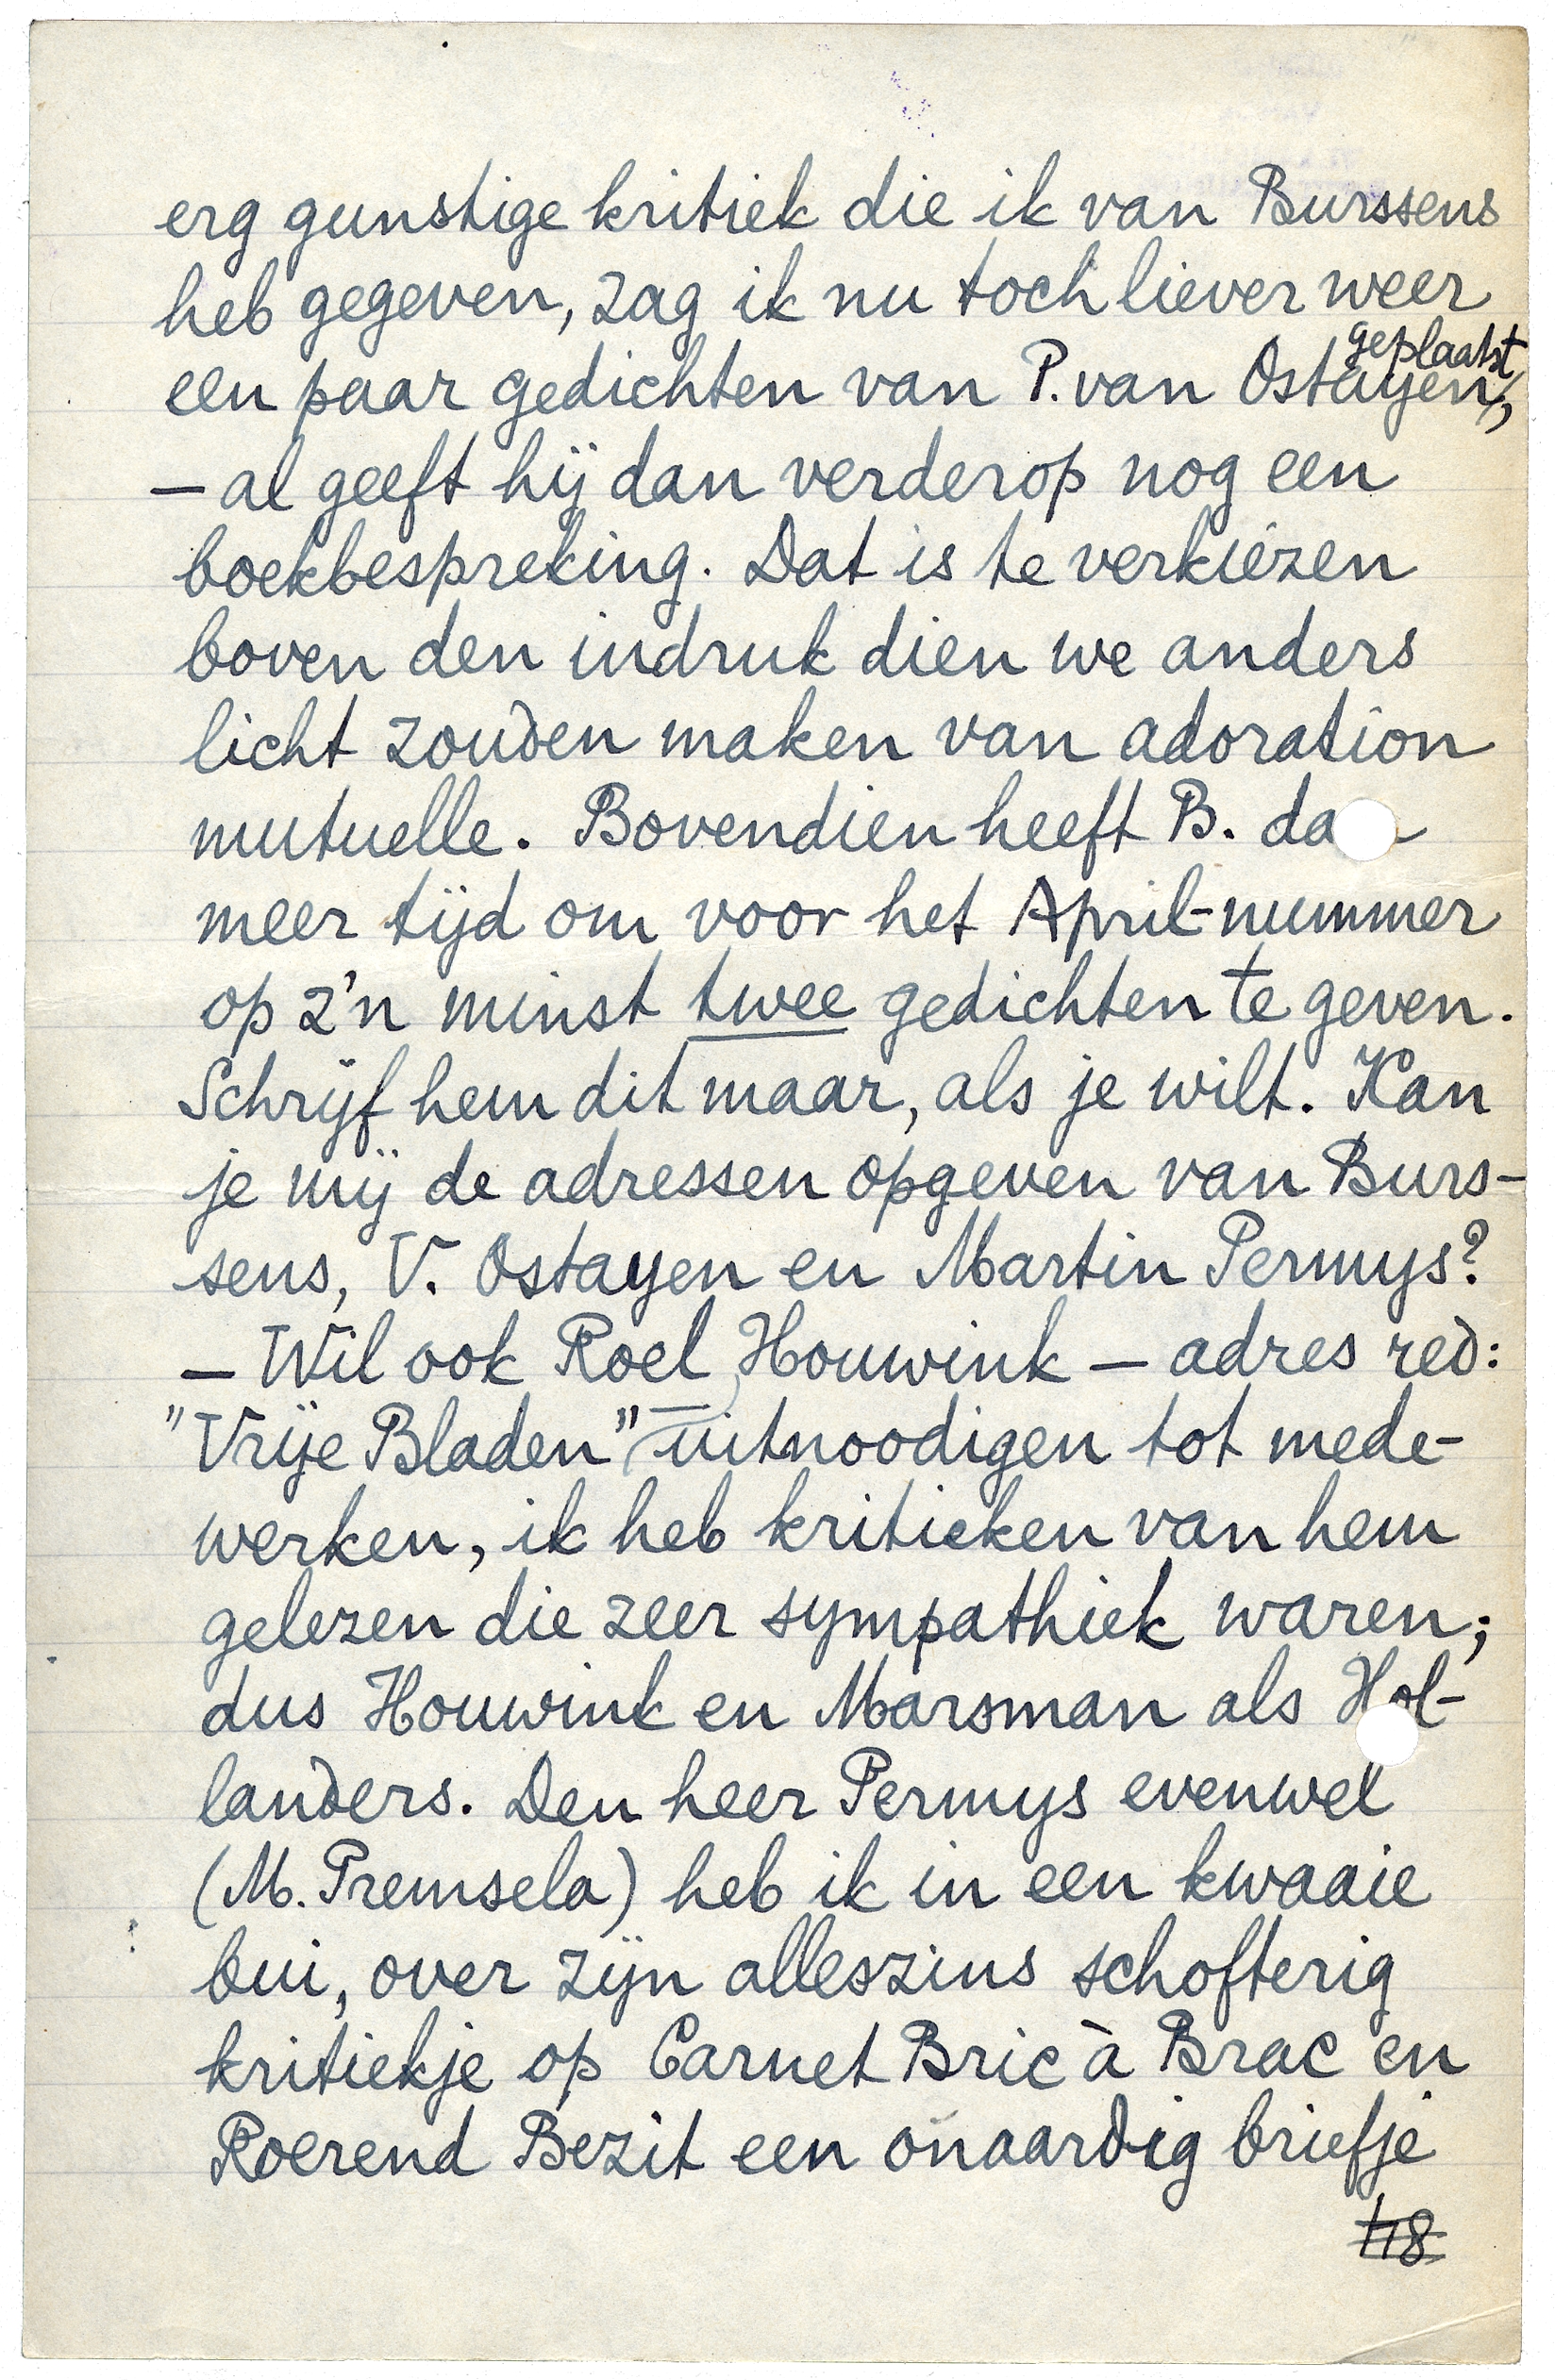 erg gunstige kritiek die ik van Burssens
heb gegeven, zag ik nu toch liever weer
geplaatst
een paar gedichten van P. van Ostayen,
— al geeft hij dan verderop nog een
boekbespreking. Dat is te verkiezen
boven den indruk dien we anders
licht zouden maken van adoration
mutuelle. Bovendien heeft B. da
meer tijd om voor het April-nummer
op z'n minst twee gedichten te geven.
Schrijf hem dit maar, als je wilt. Kan
je mij de adressen opgeven van Burs-
sens, V. Ostayen en Martin Permys?
— Wil ook Roel Houwink — adres red:
"Vrije Bladen" — uitnoodigen tot mede-
werken, ik heb kritieken van hem
gelezen die zeer sympathiek waren;
dus Houwink en Marsman als Hol-
landers. Den heer Permys evenwel
(M. Premsela) heb ik in een kwaaie
bui, over zijn alleszins schofterig
kritiekje op Carnet Bric à Brac en
Roerend Bezit een onaardig briefje